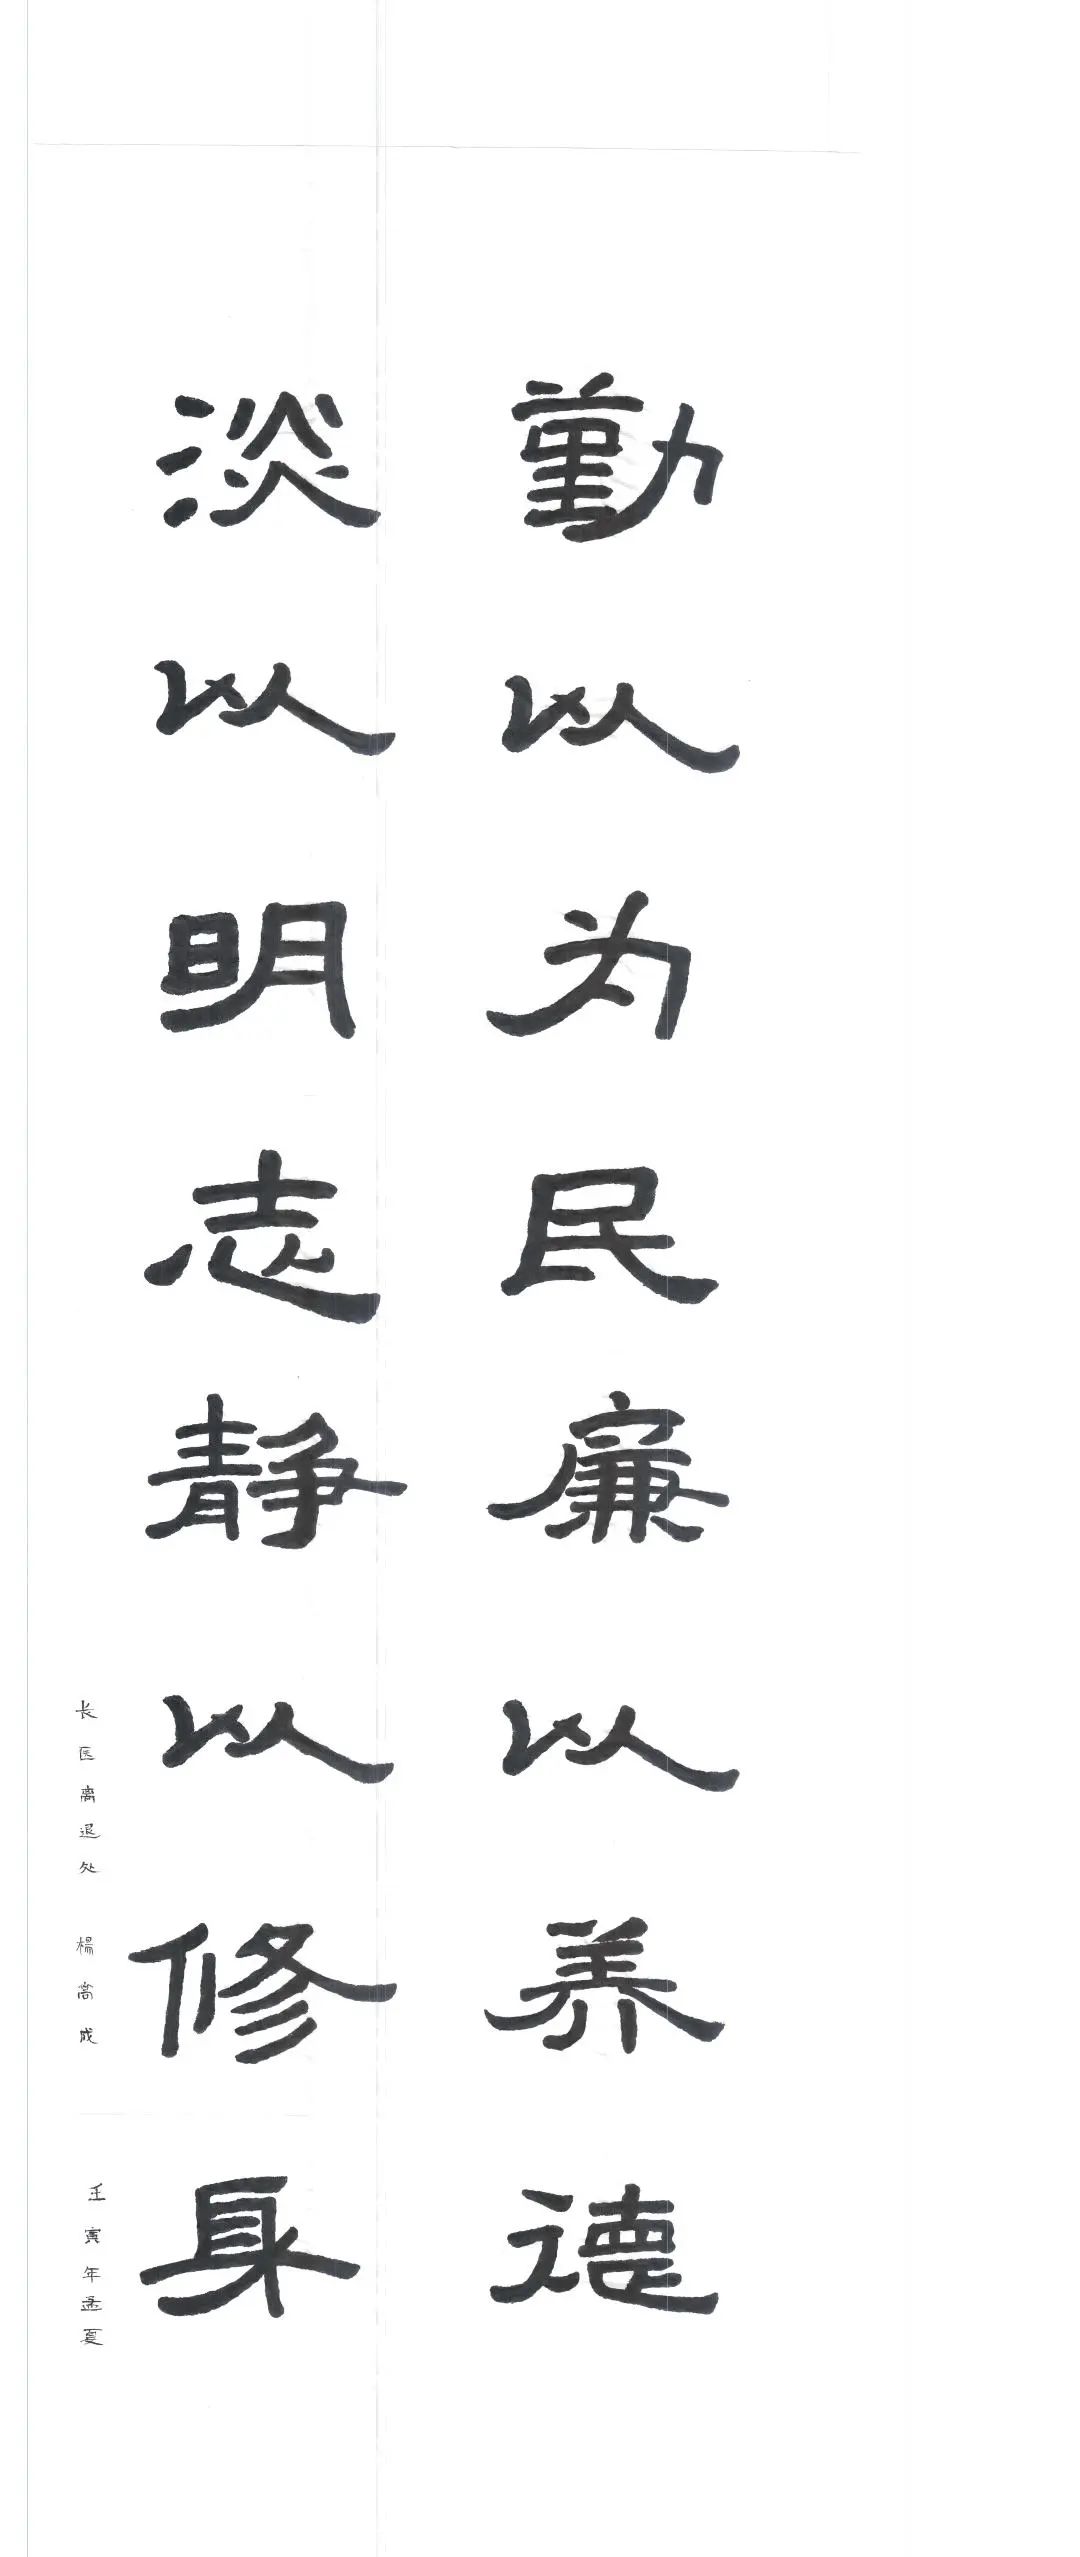 勤以为民廉以养德
淡以明志静以修身
长医离退处 楊嵩成
壬寅年孟夏